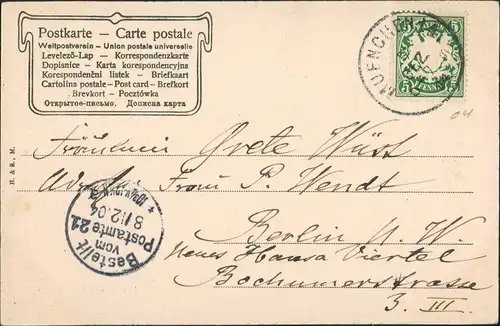 Postkarte – Carte postale
Weltpostverein – Union postale universelle
Levelező-Lap – Korrespondenzkarte
Dopisnice – Karta korespondencyjna
Korespondenční listek – Briefkaart
Cartolina postale – Post card – Brefkort
Brevkort – Pocztówka
Открытое-письмо. Дописна карта
MUENCHEN
5 5
5 PFENNIG 5
04
H. & B. M.
Fräulein Grete Wüst
Adr. Frau P. Wendt
Berlin N. W.
neues Hansa Viertel
Bochumerstrasse
3. III.
Bestellt
vom
Postamte 21
8/12.04